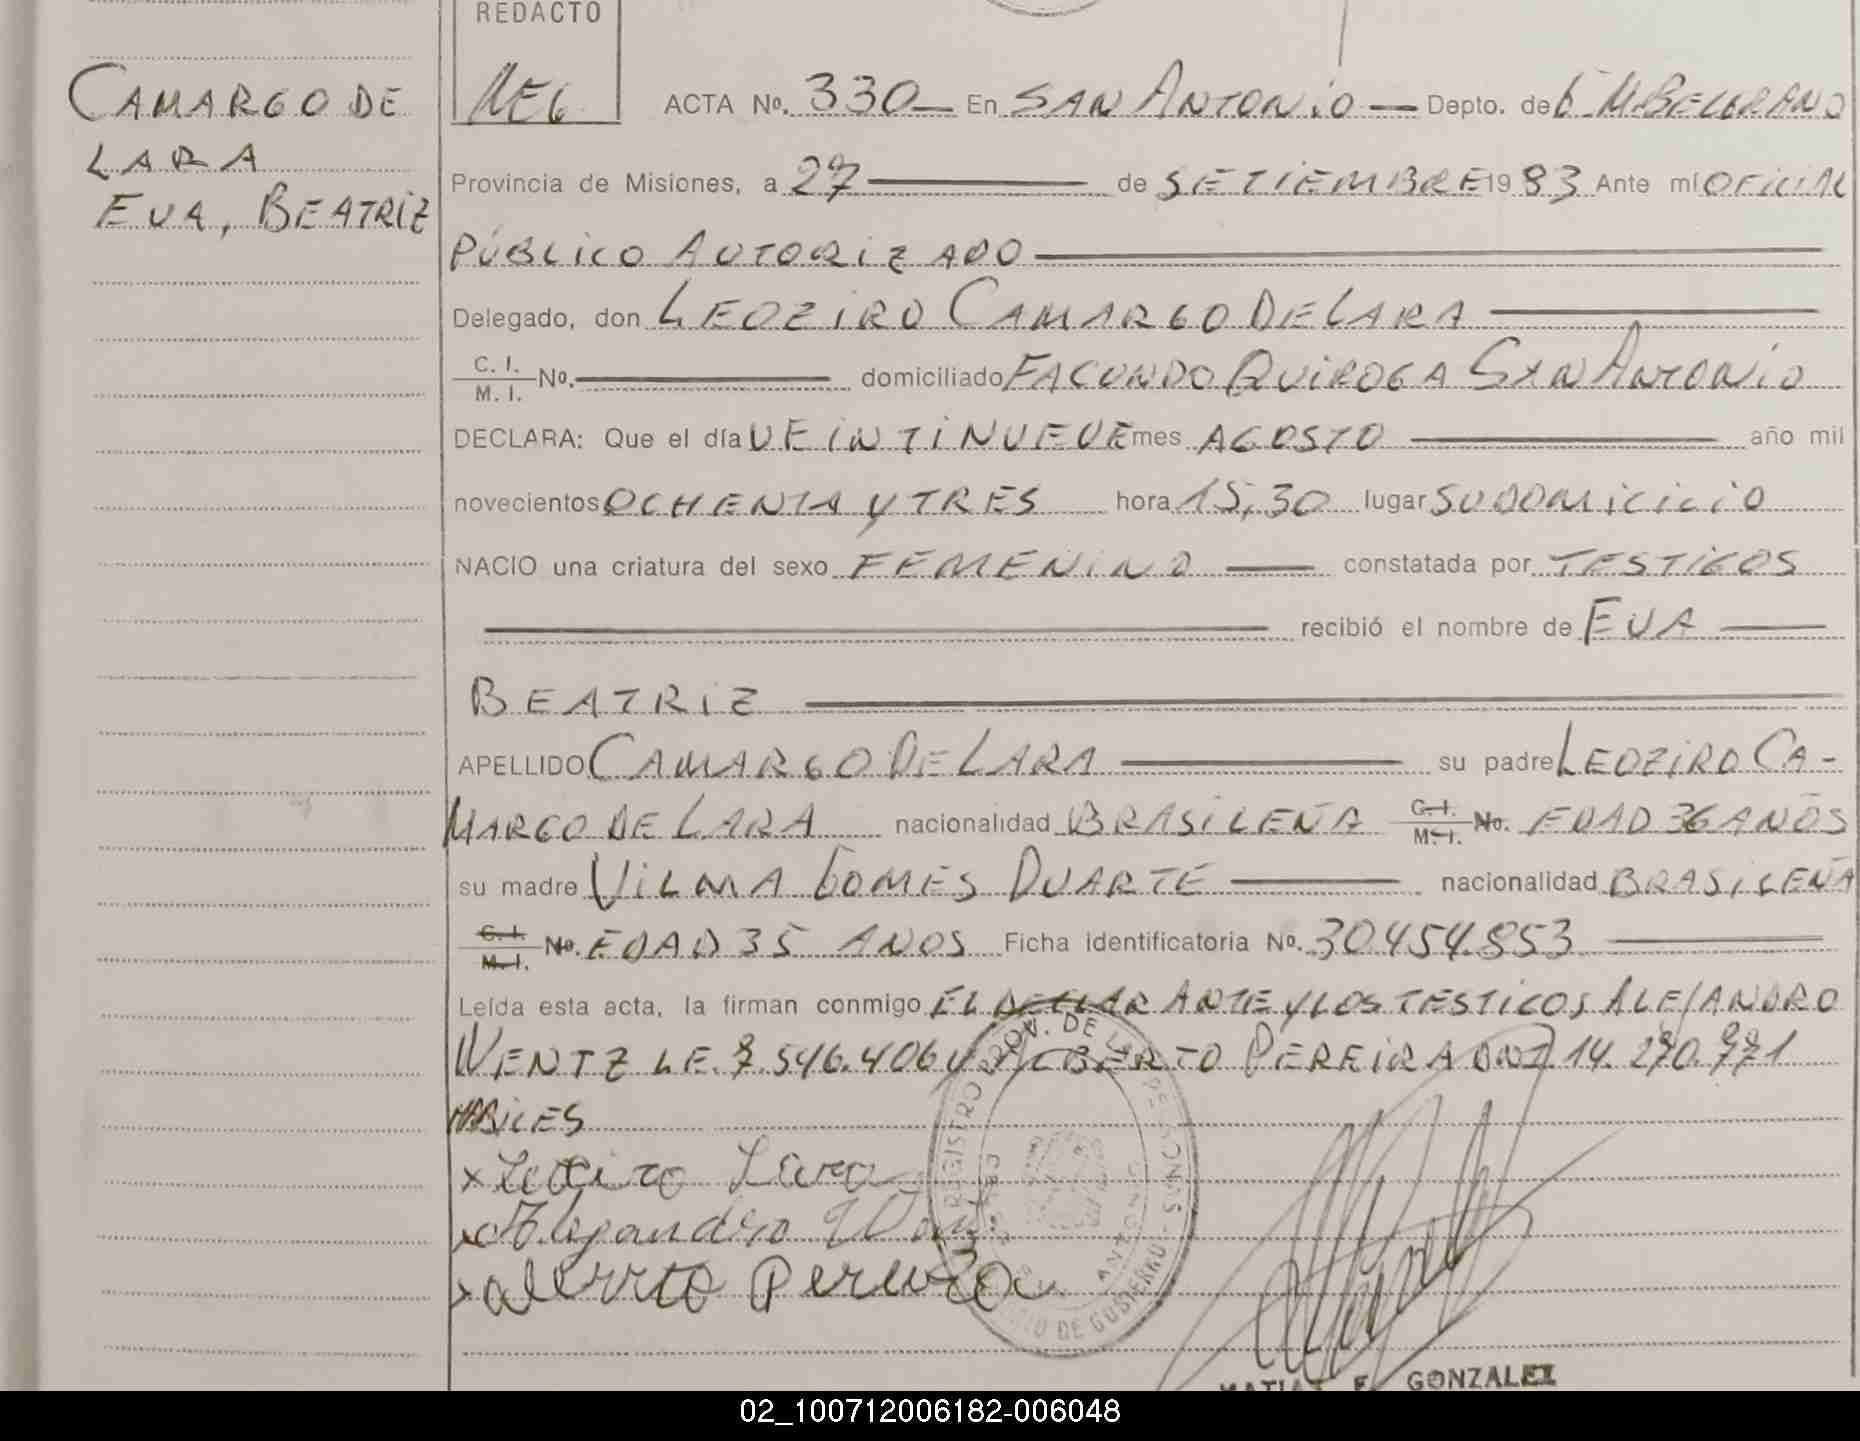 CAMARGO DE
LARA
EVA, BEATRIZ
REDACTO
MEG
ACTA No. 330 En SAN ANTONIO Depto. de G M. BELGRANO
Provincia de Misiones, a 27 de SETIEMBRE 19 83 Ante mí OFICIAL
PÚBLICO AUTORIZADO
Delegado, don LEOZIRO CAMARGO DE LARA
C. I. No. domiciliado FACUNDO QUIROGA SAN ANTONIO
M. I.
DECLARA: Que el día VEINTINUEVE mes AGOSTO año mil
novecientos OCHENTA Y TRES hora 15,30 lugar SU DOMICILIO
NACIO una criatura del sexo FEMENINO constatada por TESTIGOS
recibió el nombre de EVA
BEATRIZ
APELLIDO CAMARGO DE LARA su padre LEOZIRO CA-
MARGO DE LARA nacionalidad BRASILEÑA C. I. No. EDAD 36 AÑOS
M. I.
su madre VILMA GOMES DUARTE nacionalidad BRASILEÑA
C. I. No. EDAD 35 AÑOS Ficha identificatoria No. 30.454.853
M. I.
Leída esta acta, la firman conmigo EL DECLARANTE Y LOS TESTIGOS ALEJANDRO
WENTZ L.E. 7.546.406 Y ALBERTO PEREIRA DNI 14.270.771
HABILES
x Leoziro Lara
x Alejandro
x Pereira
REGISTRO PROV. DE LAS PERSONAS
SAN ANTONIO
DE GOBIERNO
MATIAS F. GONZALEZ
02_100712006182-006048